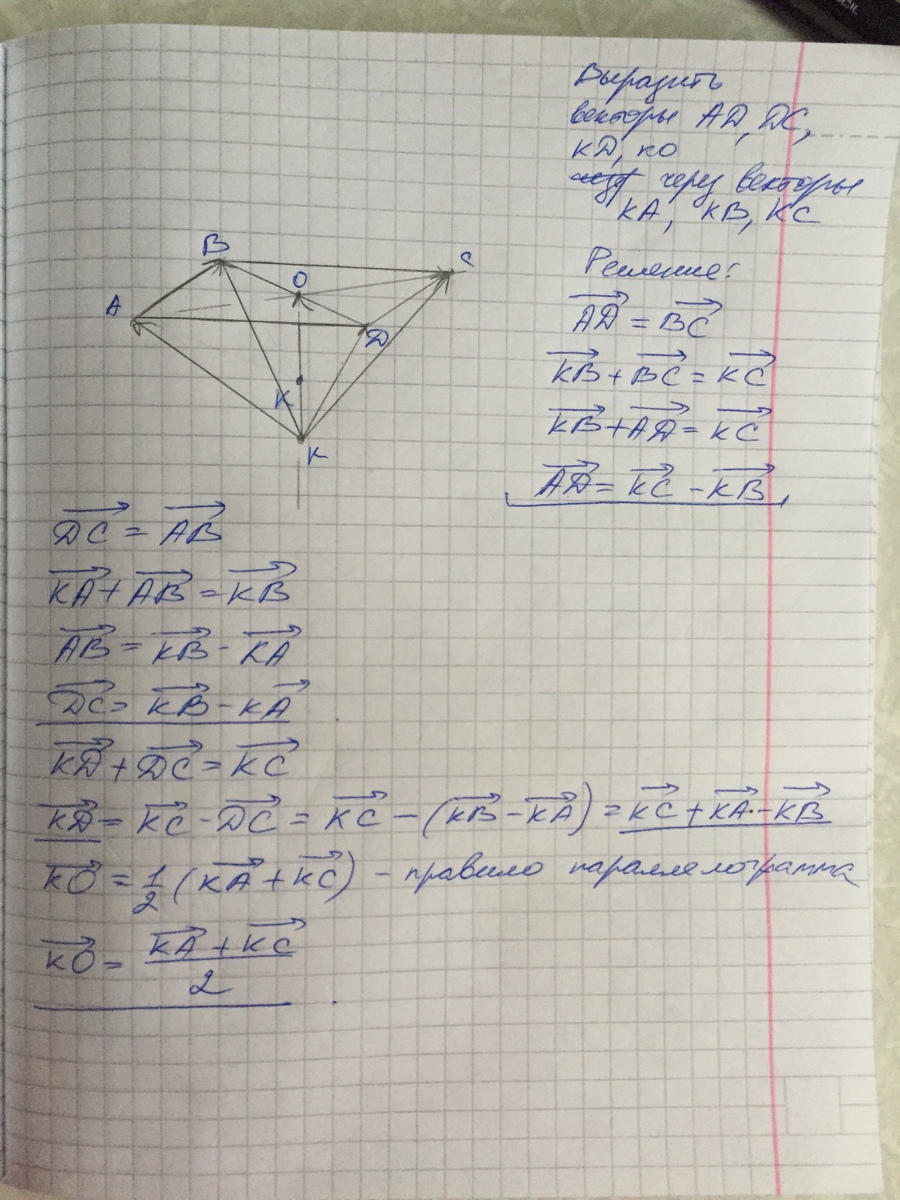 Выразить
векторы AD, DC,
KD, KO
через векторы
KA, KB, KC
B
C
O
A
D
K
K
Решение:
AD = BC
KB + BC = KC
KB + AD = KC
AD = KC - KB
DC = AB
KA + AB = KB
AB = KB - KA
DC = KB - KA
KD + DC = KC
KD = KC - DC = KC - (KB - KA) = KC + KA - KB
KO = 1/2 (KA + KC) - правило параллелограмма
KO = KA + KC
2